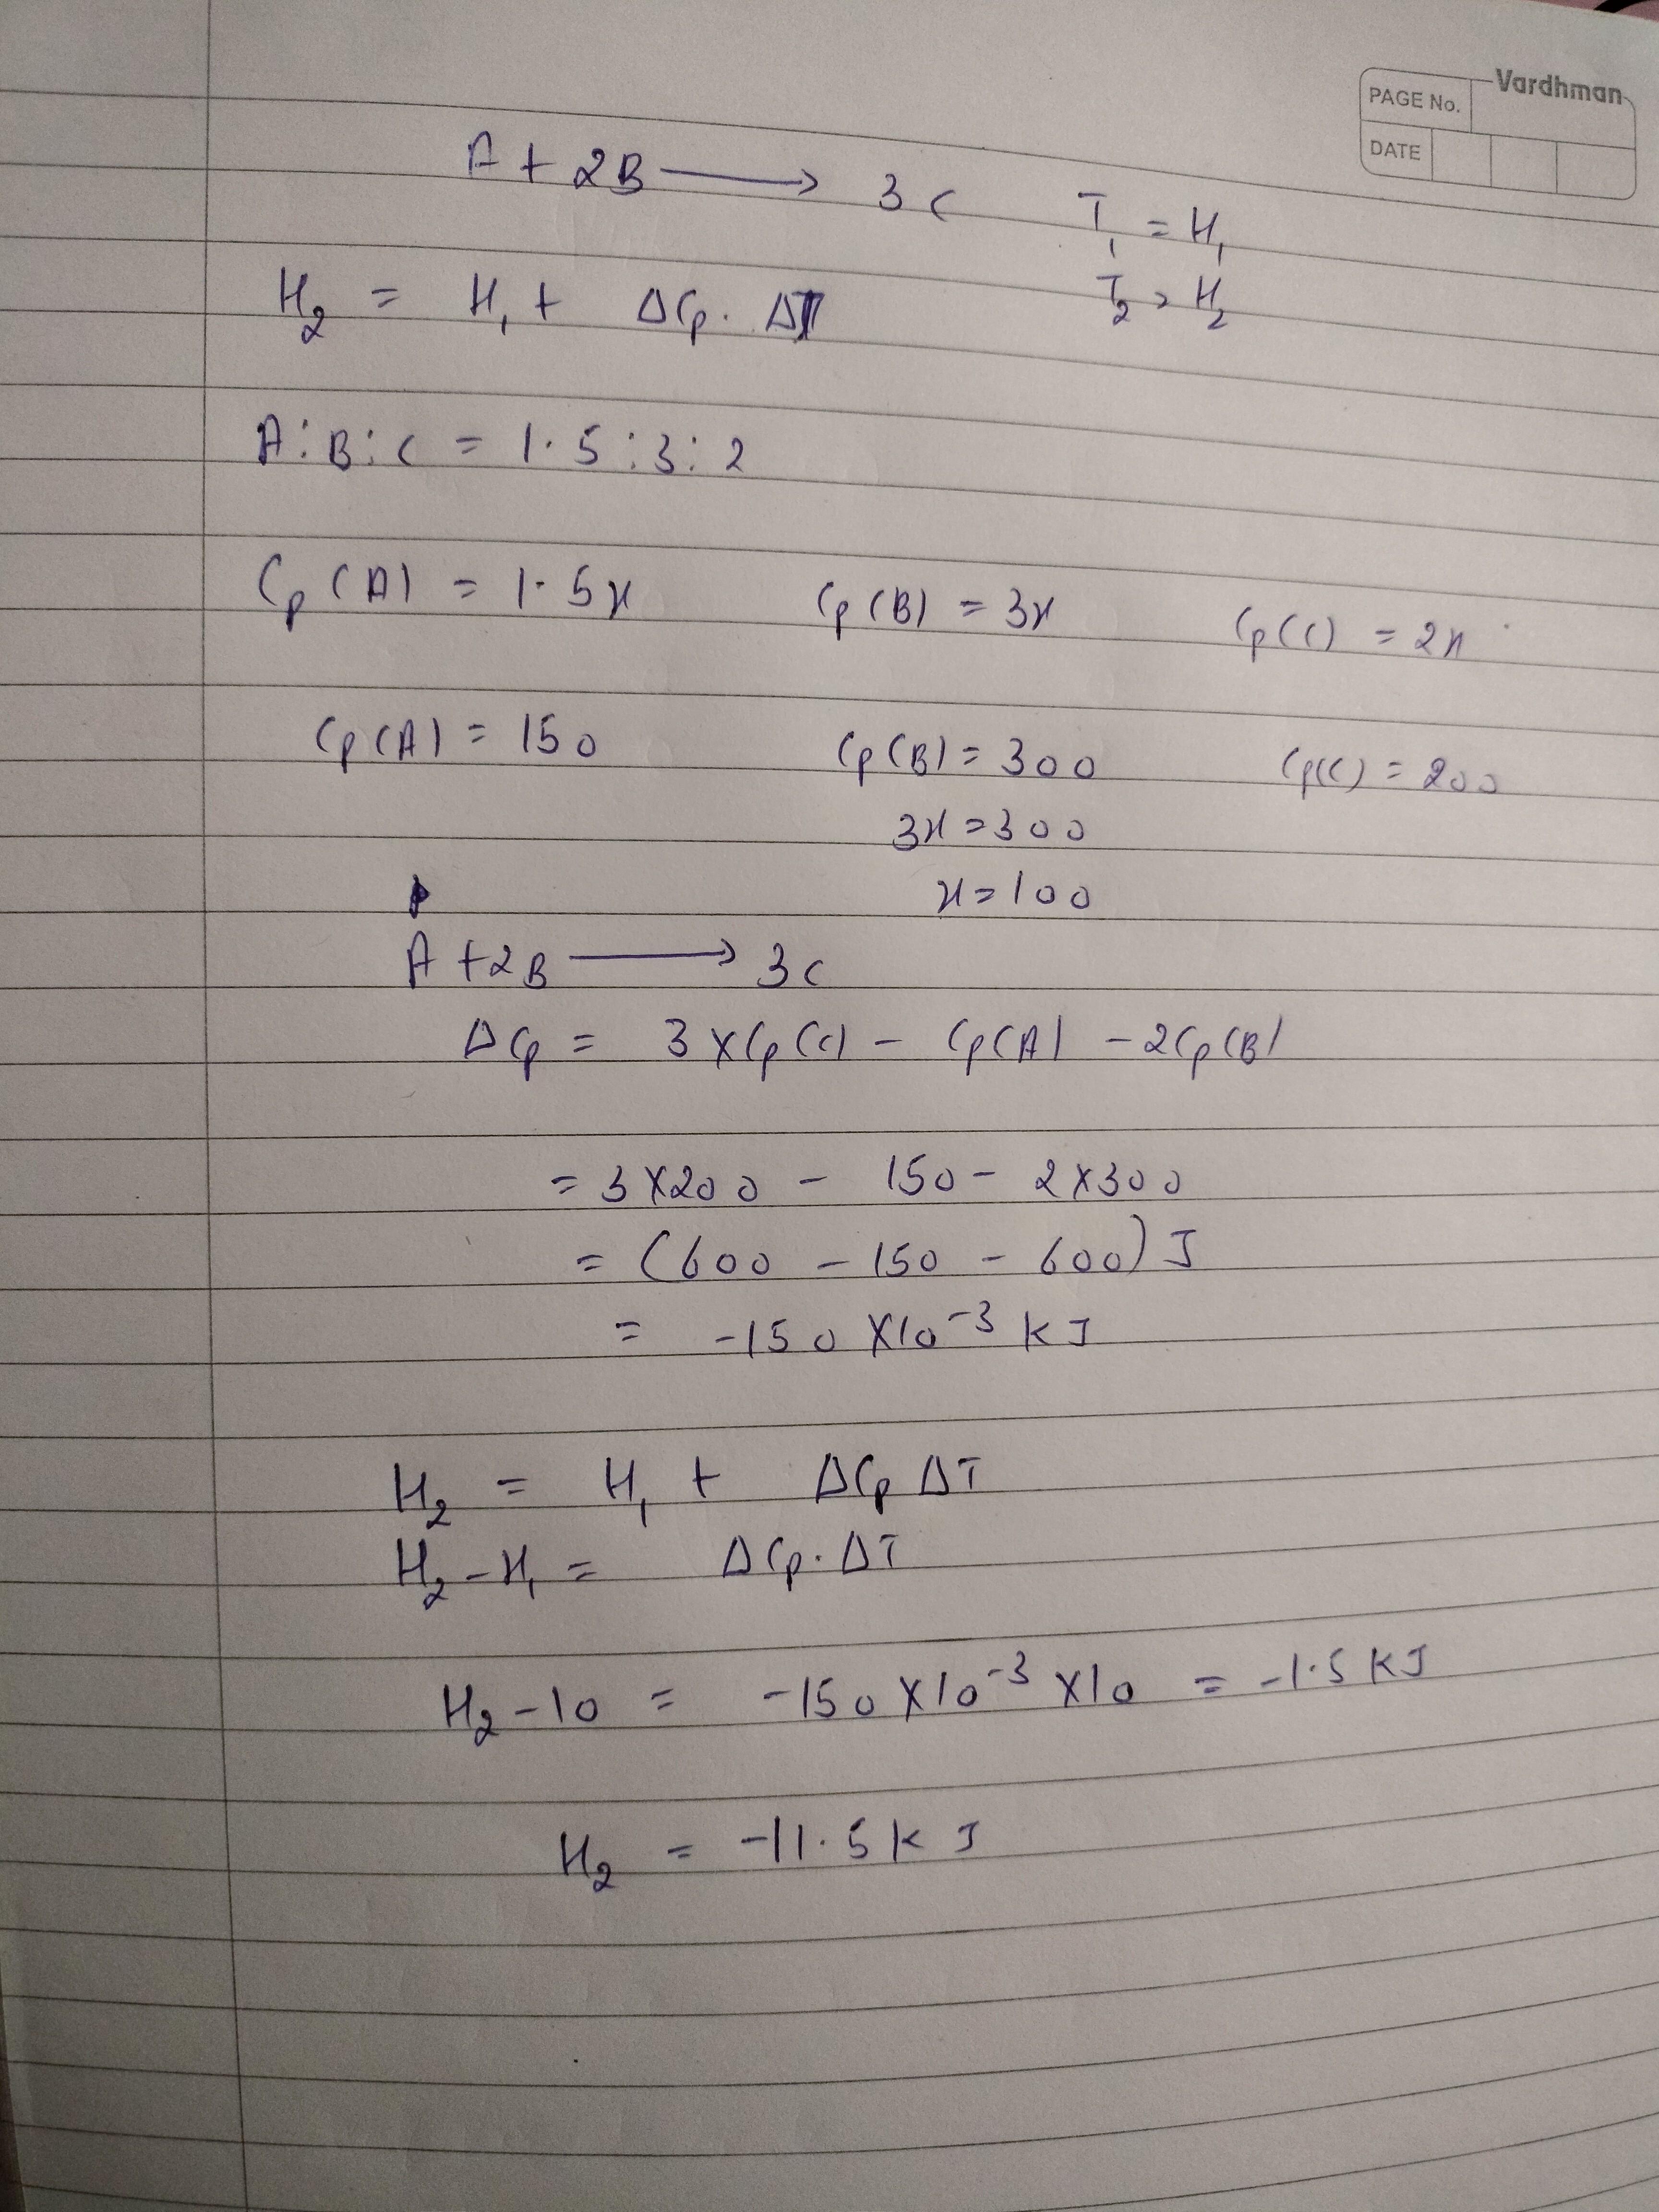 Vardhman
PAGE No.
DATE
A + 2B ⟶ 3C
T₁ = H₁
T₂ = H₂
H₂ = H₁ + ΔCp. ΔT
A:B:C = 1.5:3:2
Cp(A) = 1.5x Cp(B) = 3x Cp(C) = 2x
Cp(A) = 150 Cp(B) = 300 Cp(C) = 200
3x = 300
x = 100
A + 2B ⟶ 3C
ΔCp = 3 × Cp(C) - Cp(A) - 2Cp(B)
= 3 × 200 - 150 - 2 × 300
= (600 - 150 - 600) J
= -150 × 10⁻³ KJ
H₂ = H₁ + ΔCp ΔT
H₂ - H₁ = ΔCp. ΔT
H₂ - 10 = -150 × 10⁻³ × 10 = -1.5 KJ
H₂ = -11.5 KJ